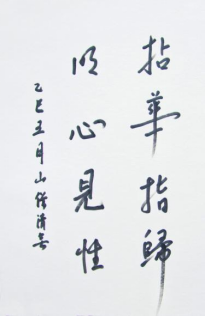 拈華指歸
明心見性
乙巳五月山僧清善